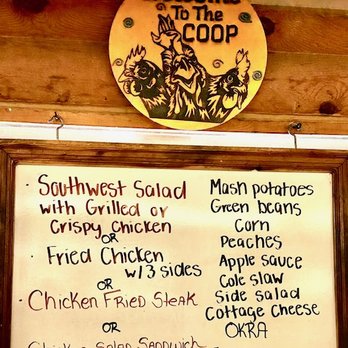 To The
COOP
· Southwest Salad
with Grilled or
Crispy Chicken
OR
· Fried Chicken
w/3 sides
OR
· Chicken Fried Steak
OR
Chicken Salad Sandwich
Mash potatoes
Green beans
Corn
Peaches
Apple sauce
Cole slaw
Side salad
Cottage Cheese
OKRA